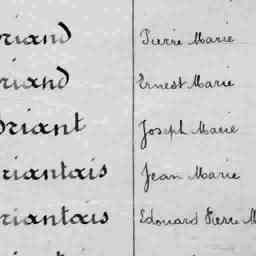 riand Pierre Marie
riand Ernest Marie
riant Joseph Marie
riantais Jean Marie
riantais Edouard Pierre M